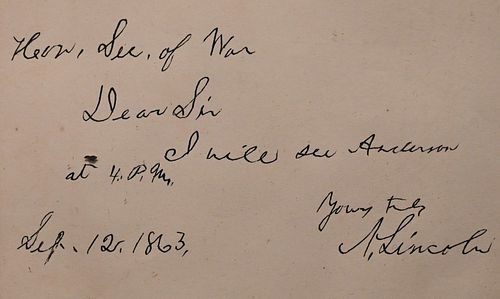 Hon. Sec. of War
Dear Sir
I will see Anderson
at 4. P.M.
Yours truly
Sep. 12. 1863.
A. Lincoln